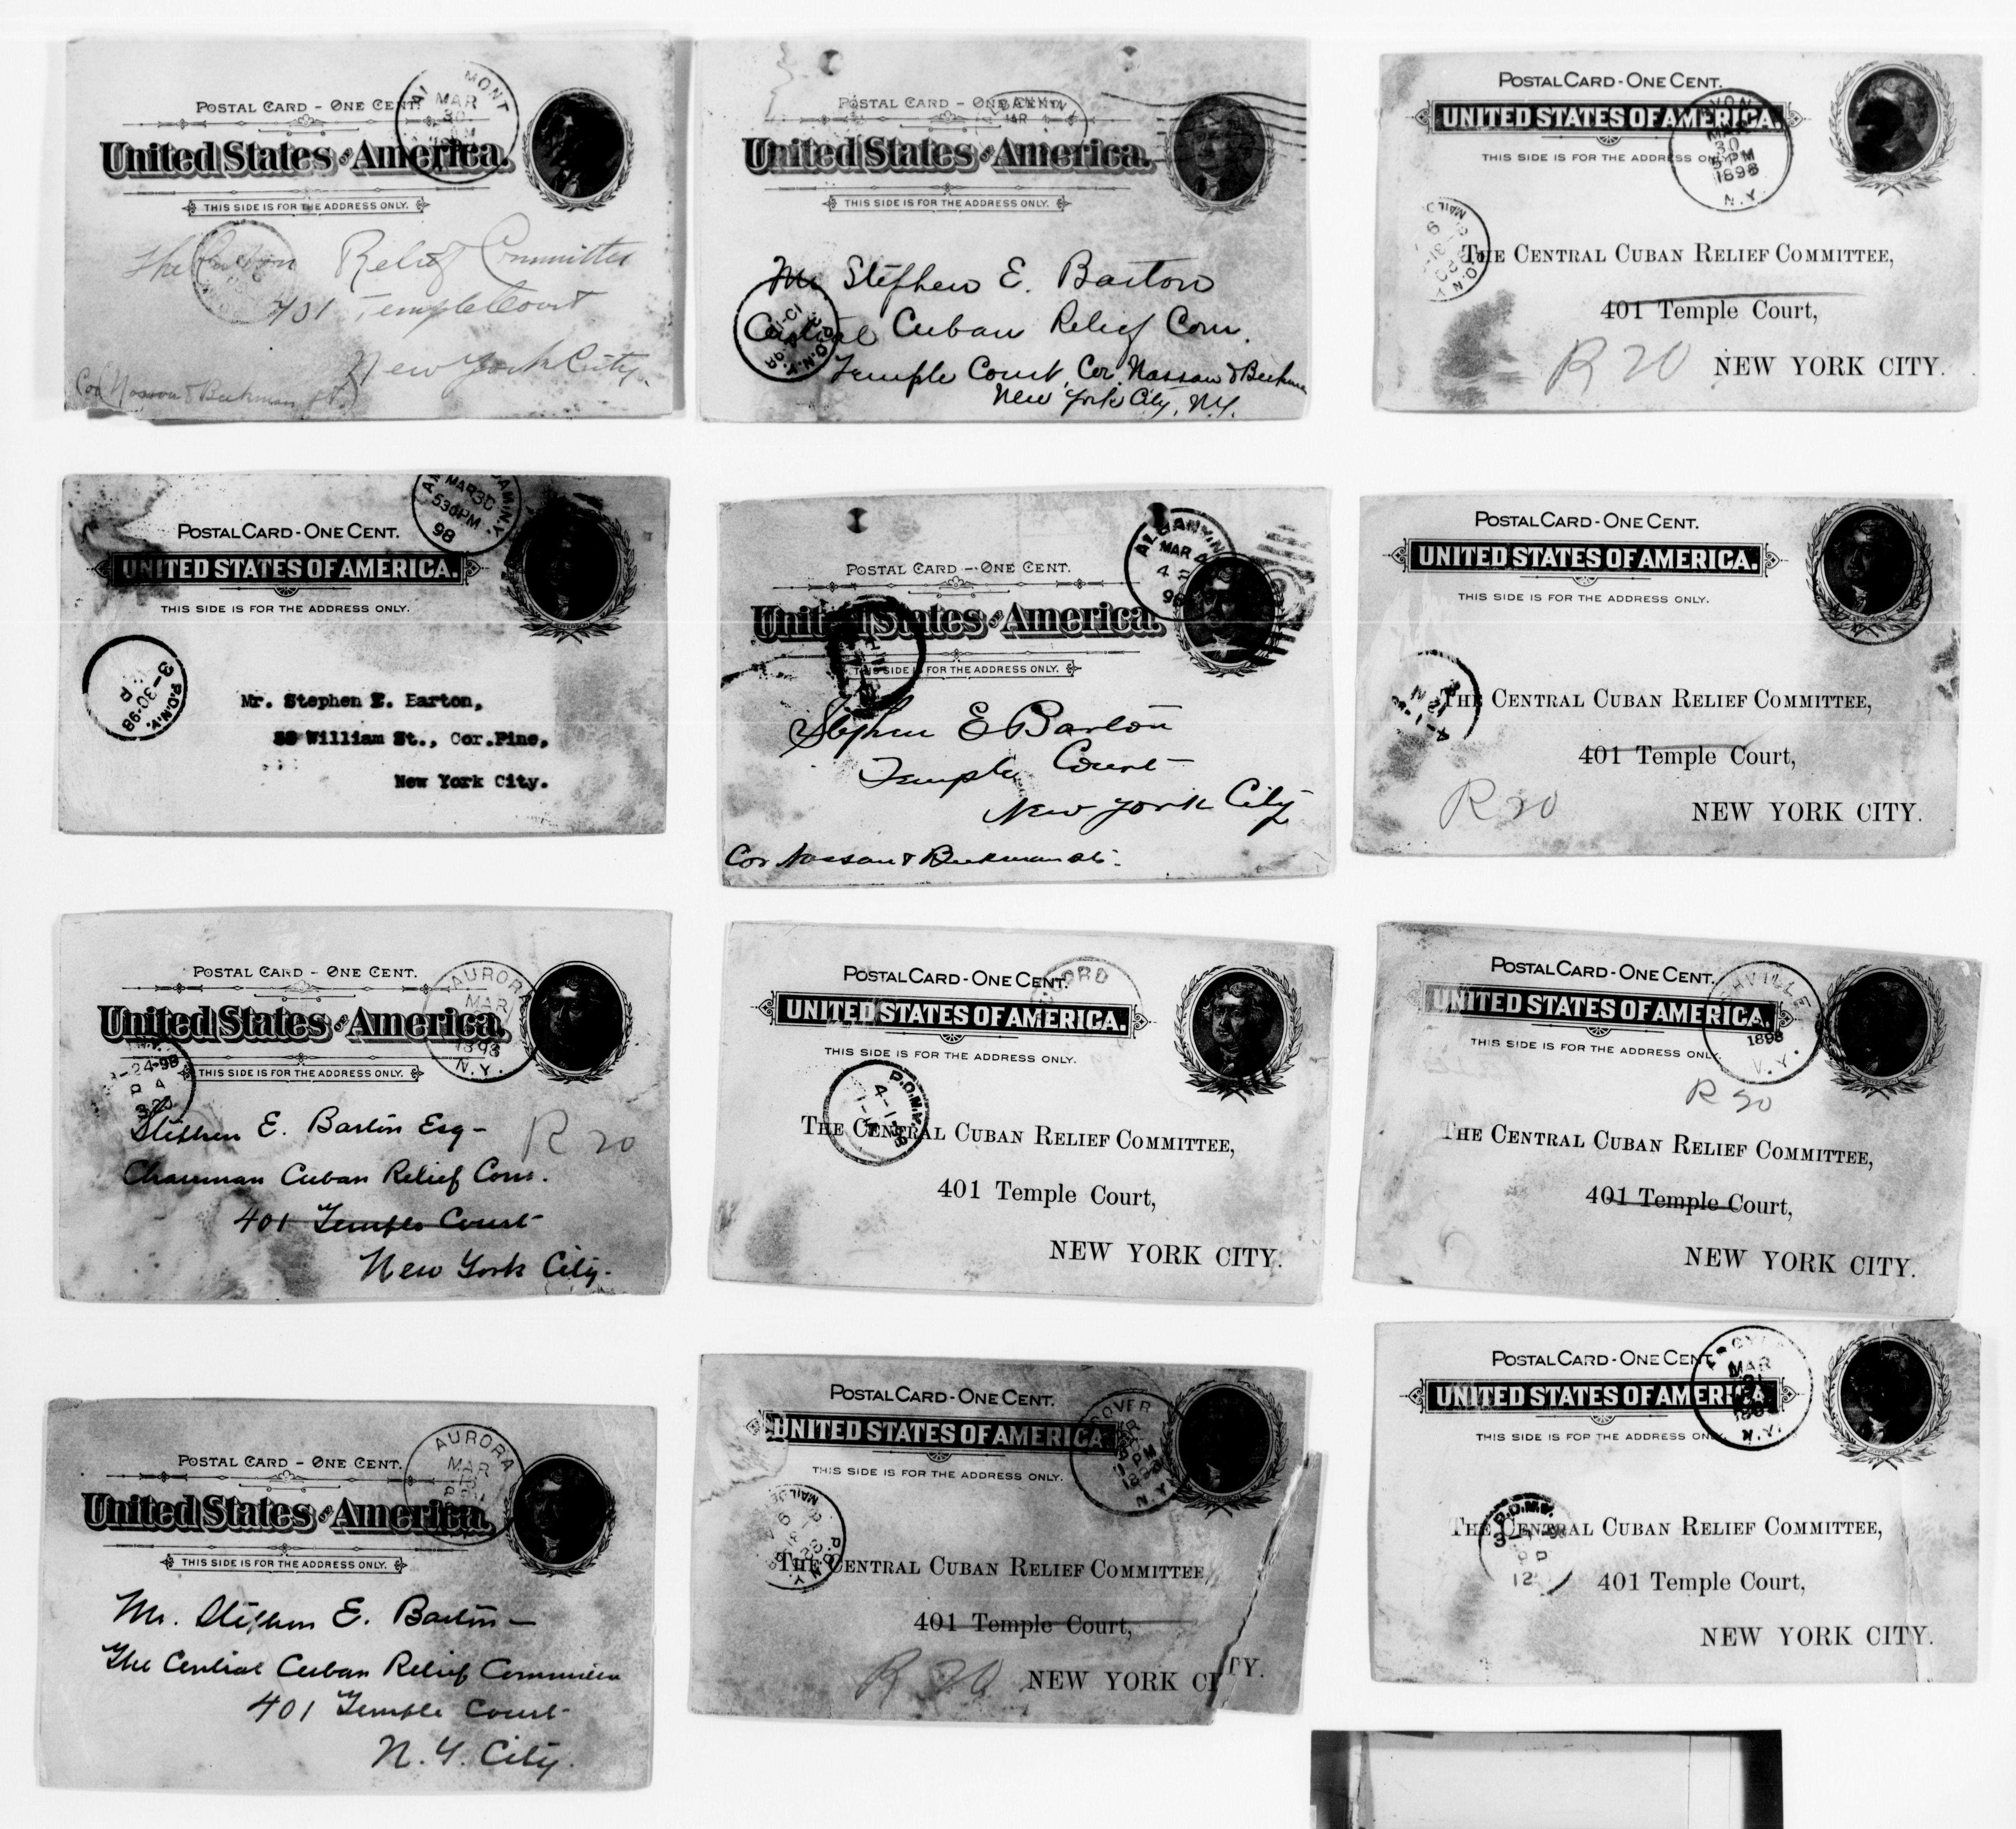 POSTAL CARD - ONE CENT.
United States of America.
THIS SIDE IS FOR THE ADDRESS ONLY.
MONT
MAR
30
The Cuban Relief Committee
401 Temple Court
New York City.
Cor Nassau & Beekman St.
POSTAL CARD - ONE CENT.
United States of America.
THIS SIDE IS FOR THE ADDRESS ONLY.
Mr Stephen E. Barton
Central Cuban Relief Com.
Temple Court, Cor. Nassau & Beekman
New York City, N.Y.
POSTAL CARD - ONE CENT.
UNITED STATES OF AMERICA.
THIS SIDE IS FOR THE ADDRESS ONLY.
30
5 PM
1898
N.Y.
THE CENTRAL CUBAN RELIEF COMMITTEE,
401 Temple Court,
R 20 NEW YORK CITY.
MAR 30
530PM
98
POSTAL CARD - ONE CENT.
UNITED STATES OF AMERICA.
THIS SIDE IS FOR THE ADDRESS ONLY.
P.O.N.Y.
3-30-98
P
Mr. Stephen E. Barton,
William St., Cor. Pine,
New York City.
POSTAL CARD - ONE CENT.
ALBANY, N
MAR
4
98
United States of America.
THIS SIDE IS FOR THE ADDRESS ONLY.
Stephen E Barton
Temple Court
New York City
Cor Nassau & Beekman Sts.
POSTAL CARD - ONE CENT.
UNITED STATES OF AMERICA.
THIS SIDE IS FOR THE ADDRESS ONLY.
THE CENTRAL CUBAN RELIEF COMMITTEE,
401 Temple Court,
R 20 NEW YORK CITY.
POSTAL CARD - ONE CENT.
AURORA
MAR
1898
N.Y.
United States of America.
THIS SIDE IS FOR THE ADDRESS ONLY.
-24-98
Stephen E. Barton Esq - R 20
Chairman Cuban Relief Com.
401 Temple Court
New York City.
POSTAL CARD - ONE CENT.
CORD
UNITED STATES OF AMERICA.
THIS SIDE IS FOR THE ADDRESS ONLY.
P.O.N.Y.
4-1-98
THE CENTRAL CUBAN RELIEF COMMITTEE,
401 Temple Court,
NEW YORK CITY.
POSTAL CARD - ONE CENT.
HVILLE
1898
UNITED STATES OF AMERICA.
THIS SIDE IS FOR THE ADDRESS ONLY.
R 20
THE CENTRAL CUBAN RELIEF COMMITTEE,
401 Temple Court,
NEW YORK CITY.
POSTAL CARD - ONE CENT.
AURORA
MAR
United States of America.
THIS SIDE IS FOR THE ADDRESS ONLY.
Mr. Stephen E. Barton -
The Central Cuban Relief Committee
401 Temple Court
N.Y. City.
POSTAL CARD - ONE CENT.
OVER
1 PM
1898
N.Y.
UNITED STATES OF AMERICA
THIS SIDE IS FOR THE ADDRESS ONLY.
THE CENTRAL CUBAN RELIEF COMMITTEE
401 Temple Court,
R 20 NEW YORK CITY.
POSTAL CARD - ONE CENT
MAR
N.Y.
UNITED STATES OF AMERICA.
THIS SIDE IS FOR THE ADDRESS ONLY.
P.O.N.Y.
12
THE CENTRAL CUBAN RELIEF COMMITTEE,
401 Temple Court,
NEW YORK CITY.